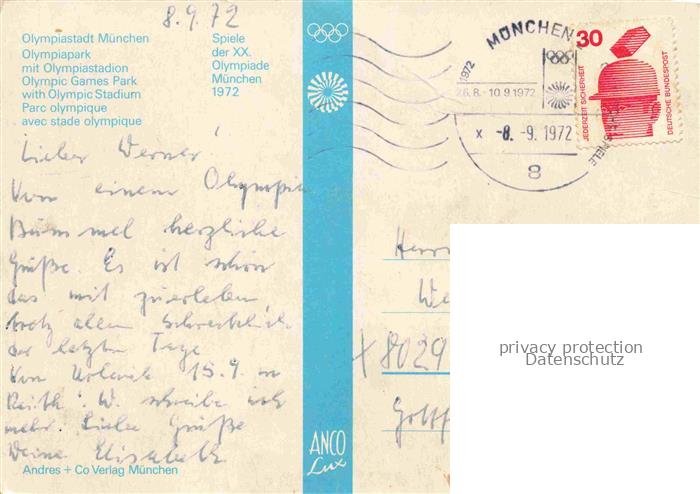 8.9.72
Olympiastadt München
Olympiapark
mit Olympiastadion
Olympic Games Park
with Olympic Stadium
Parc olympique
avec stade olympique
Spiele
der XX.
Olympiade
München
1972
Lieber Werner!
Von einem Olympia
Bummel herzliche
Grüße. Es ist schön
das mit zuerleben,
trotz allem Schrecklich
der letzten Tage
Von Urlaub 15.9. in
W. schreibe ich
mehr. Liebe Grüße
Deine Elisabeth
Andres + Co Verlag München
ANCO
Lux
MÜNCHEN
1972
26.8. - 10.9.1972
x -8. -9. 1972
8
SPIELE
30
JEDERZEIT SICHERHEIT
DEUTSCHE BUNDESPOST
Herrn
We
8029
privacy protection
Datenschutz